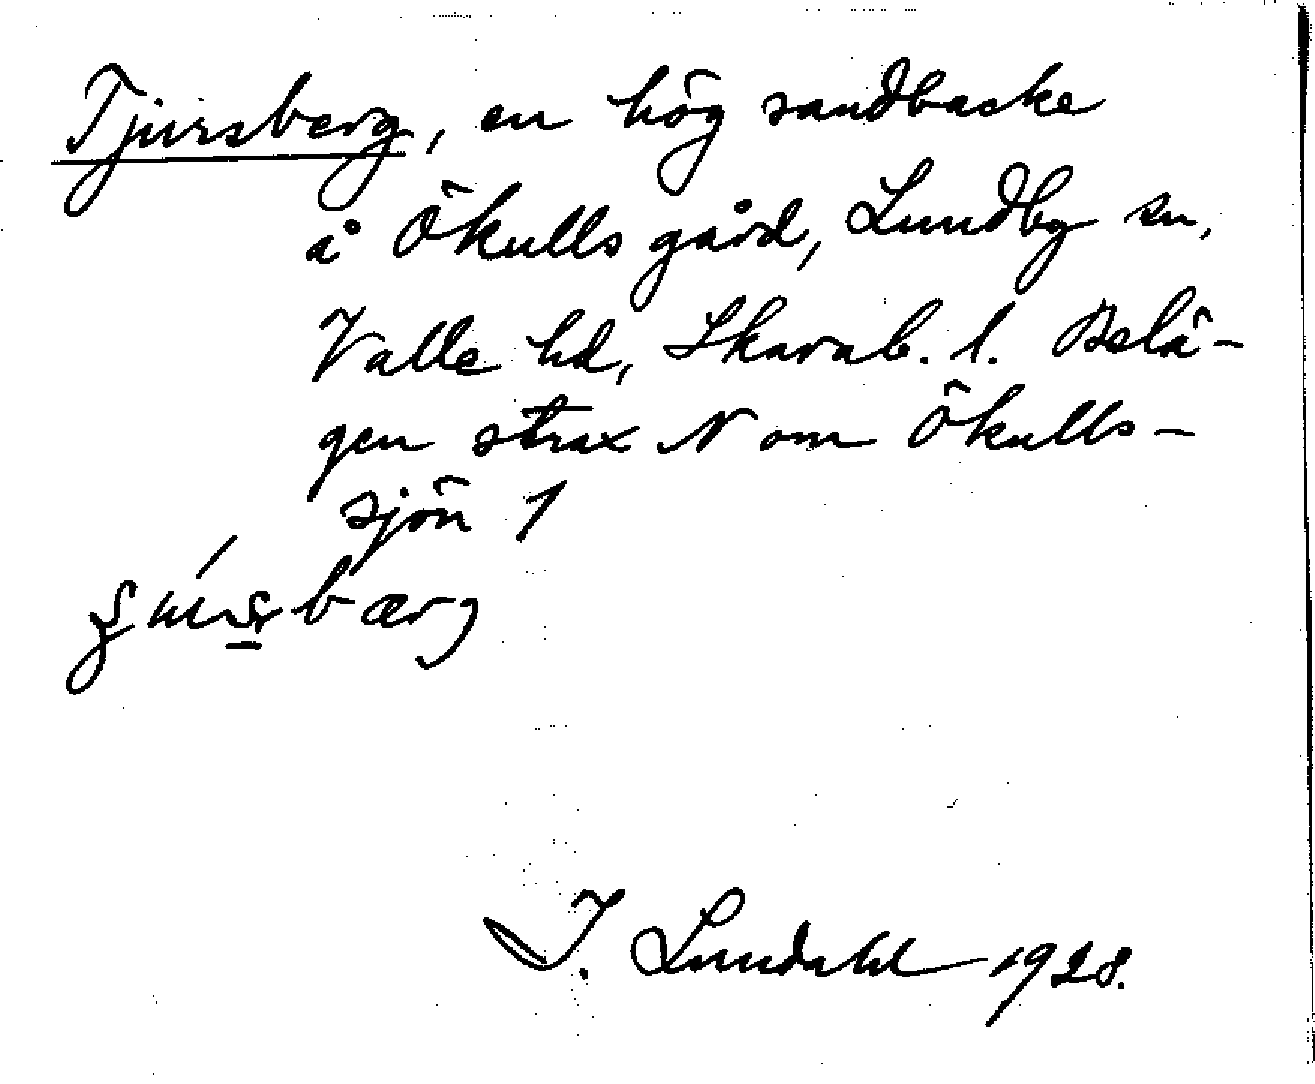 Tjursberg, en hög sandbacke
å Ökulls gård, Lundby sn,
Valle hd, Skarab. l. Belä-
gen strax N om Ökulls-
sjön 1
I. Lundahl 1928.